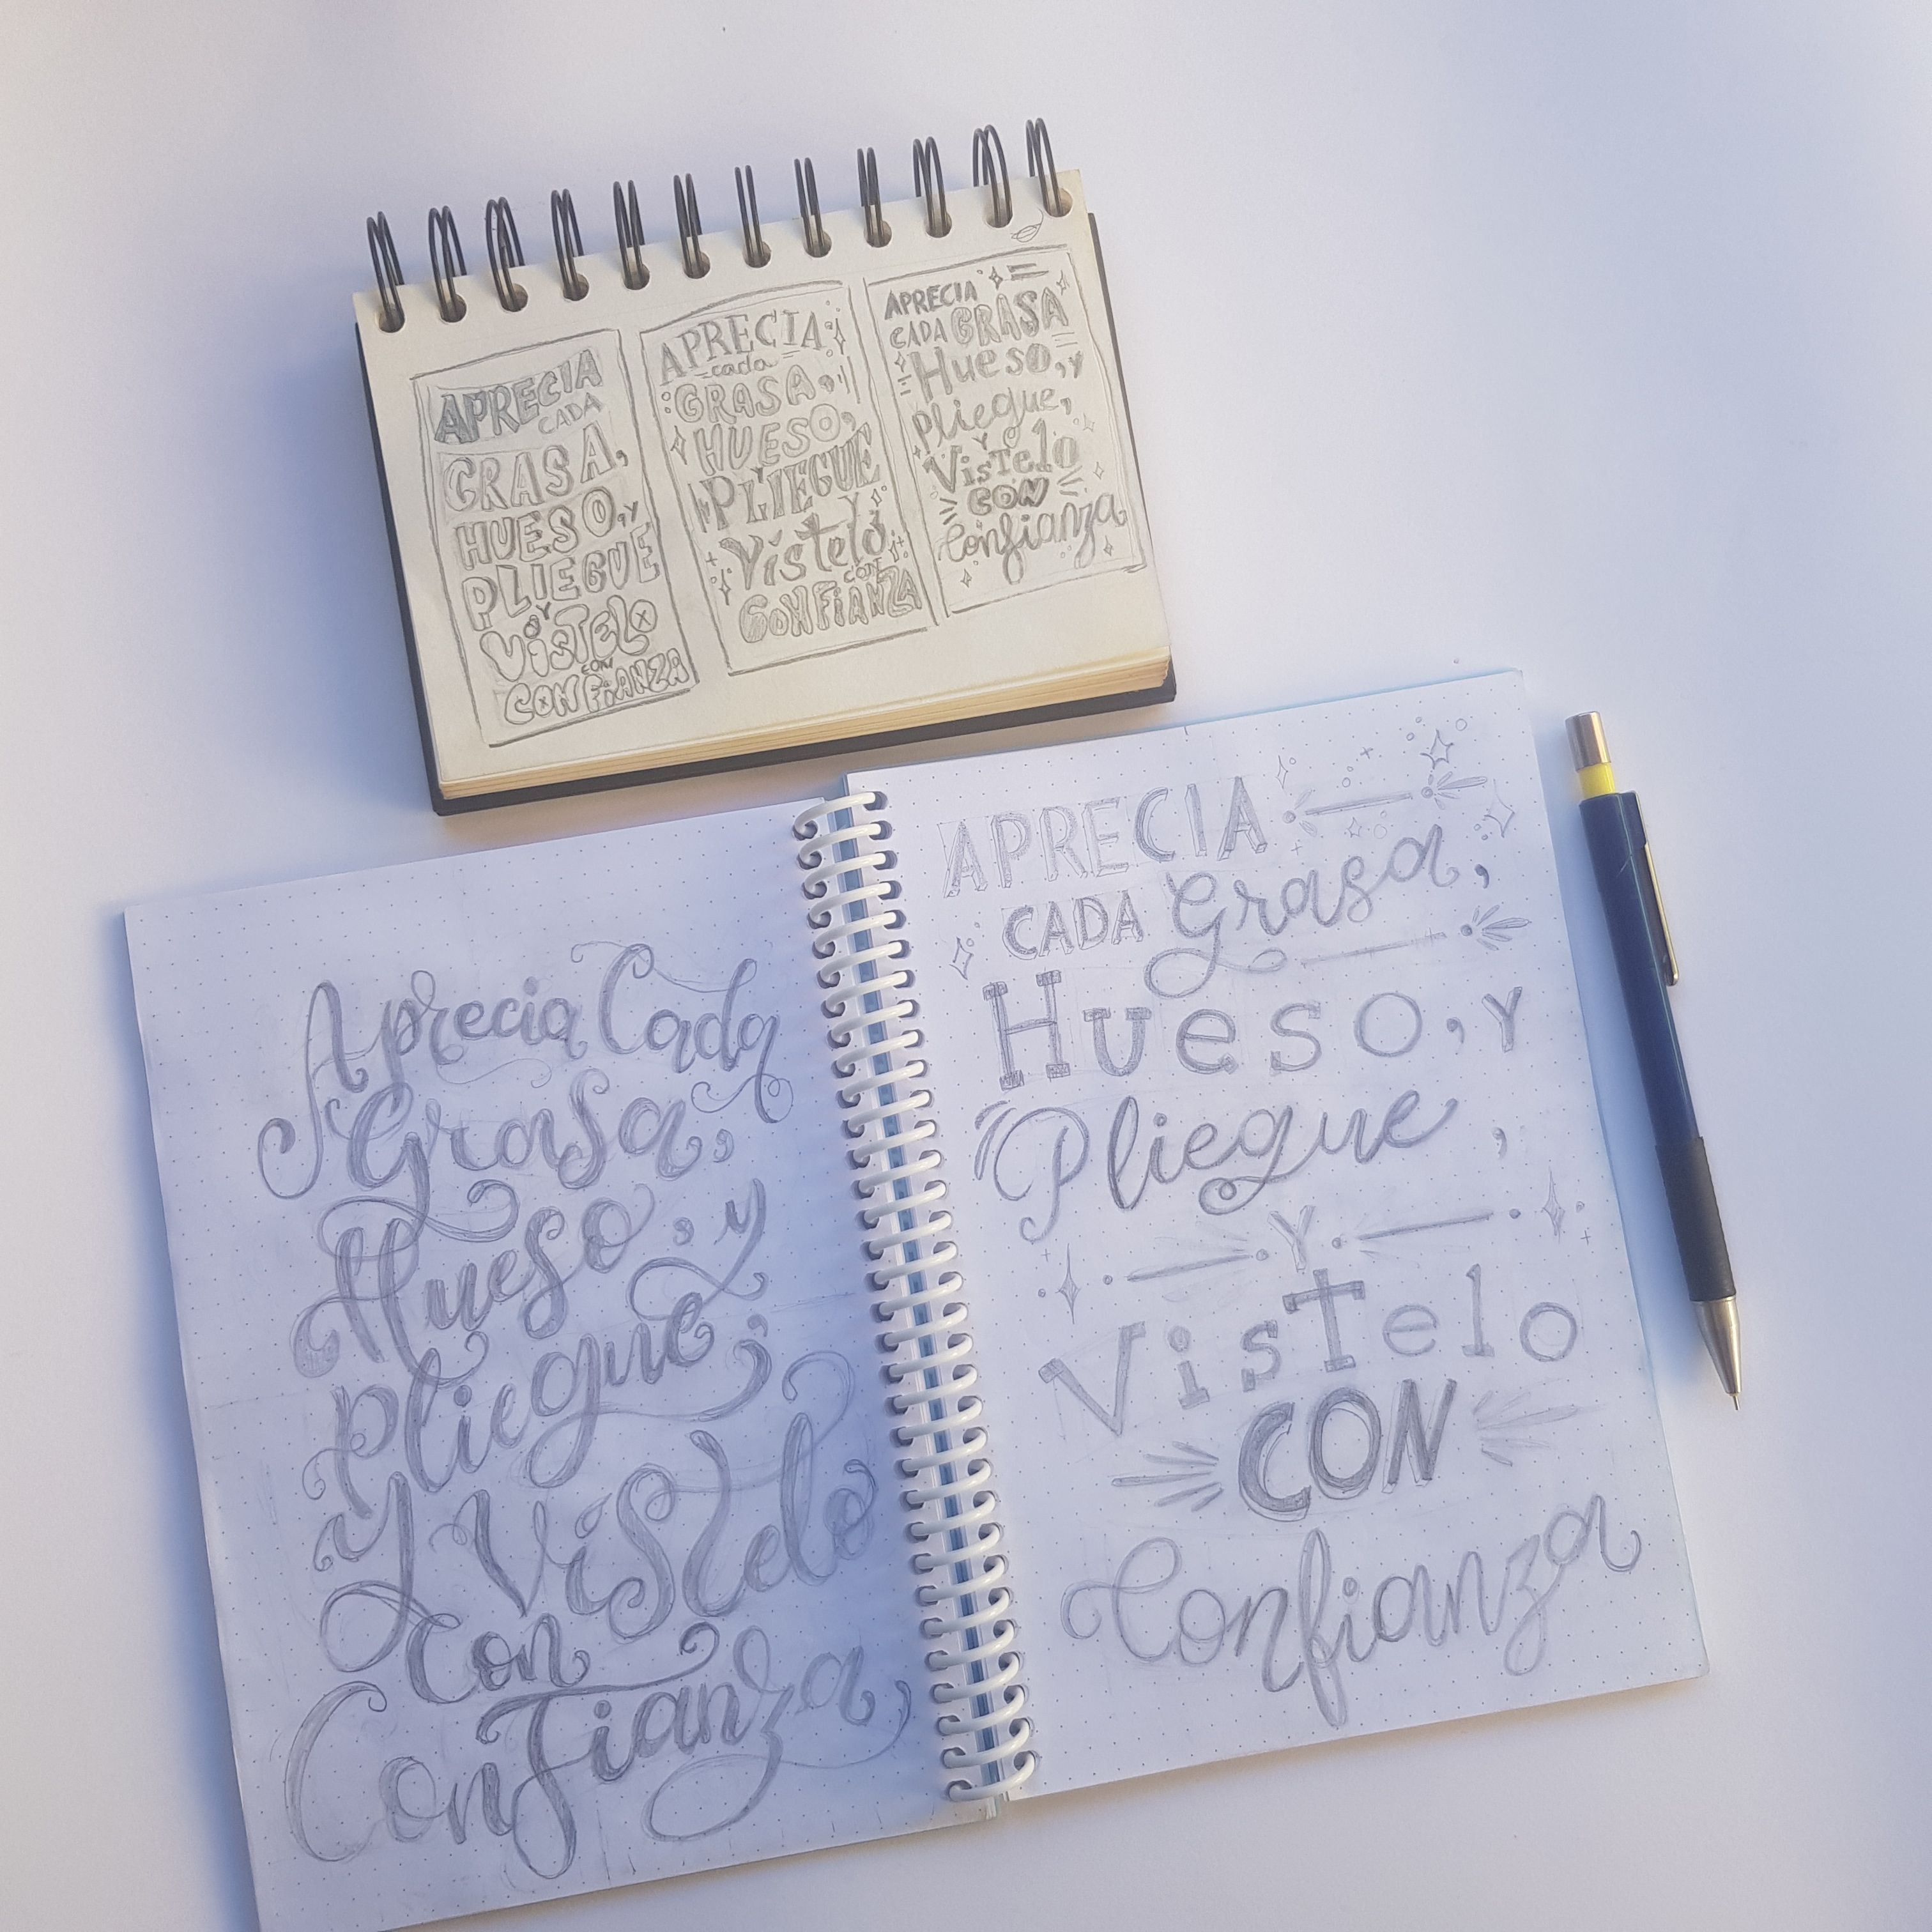 APRECIA
CADA
GRASA,
HUESO, Y
PLIEGUE
Y
VÍSTELO
CON
CONFIANZA
APRECIA
cada
GRASA,
HUESO,
PLIEGUE
Y
Vístelo
con
CONFIANZA
APRECIA
CADA GRASA
Hueso, y
pliegue,
Y
Vistelo
CON
Confianza
Aprecia Cada
Grasa,
Hueso, y
pliegue,
y Vístelo
Con
Confianza
APRECIA
CADA Grasa,
Hueso, Y
Pliegue,
Y
Vistelo
CON
Confianza